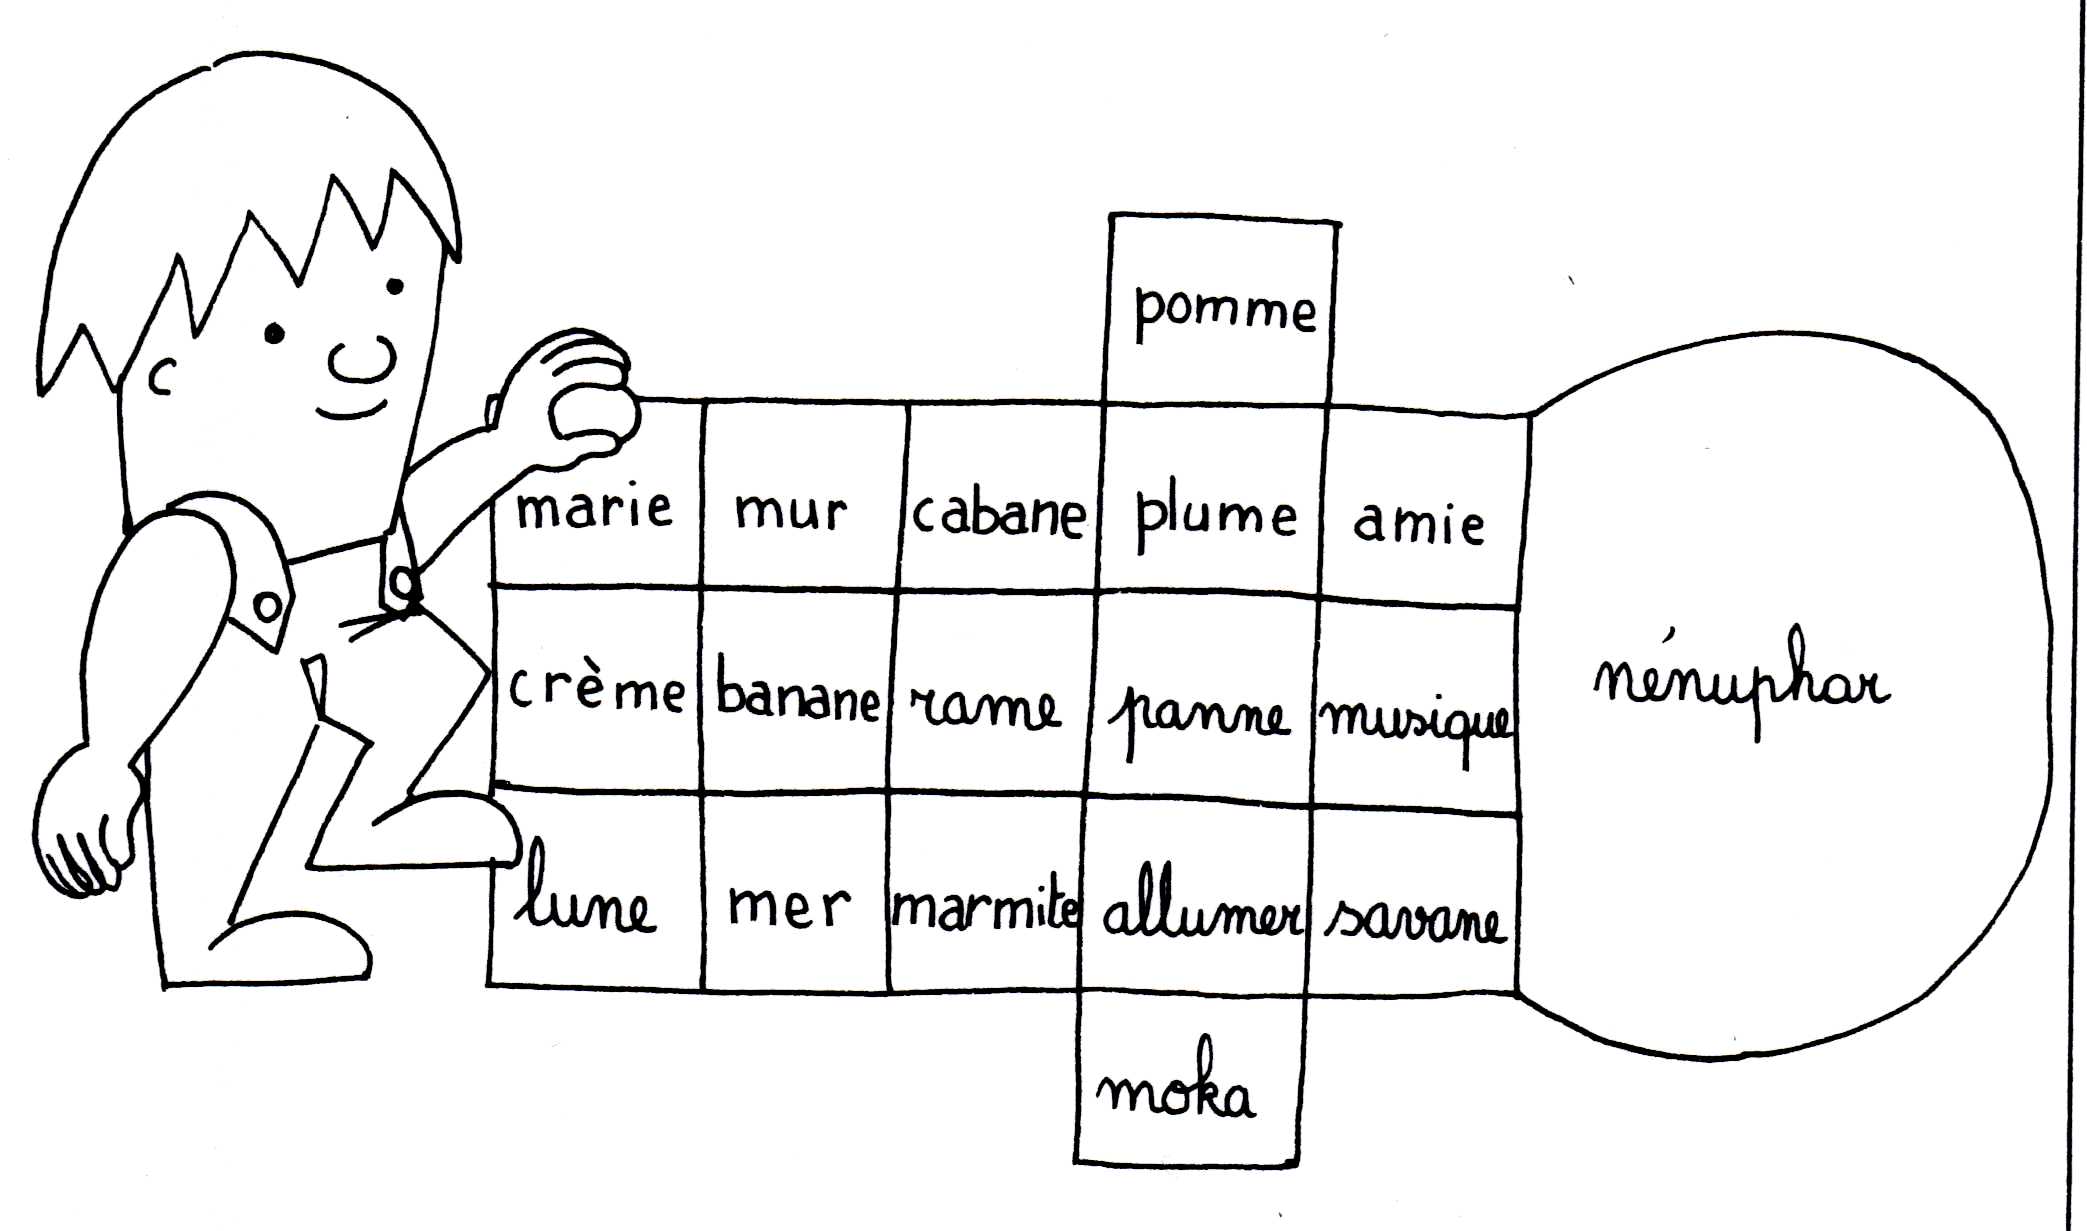 pomme
marie mur cabane plume amie
crème banane rame panne musique
nénuphar
lune mer marmite allumer savane
moka